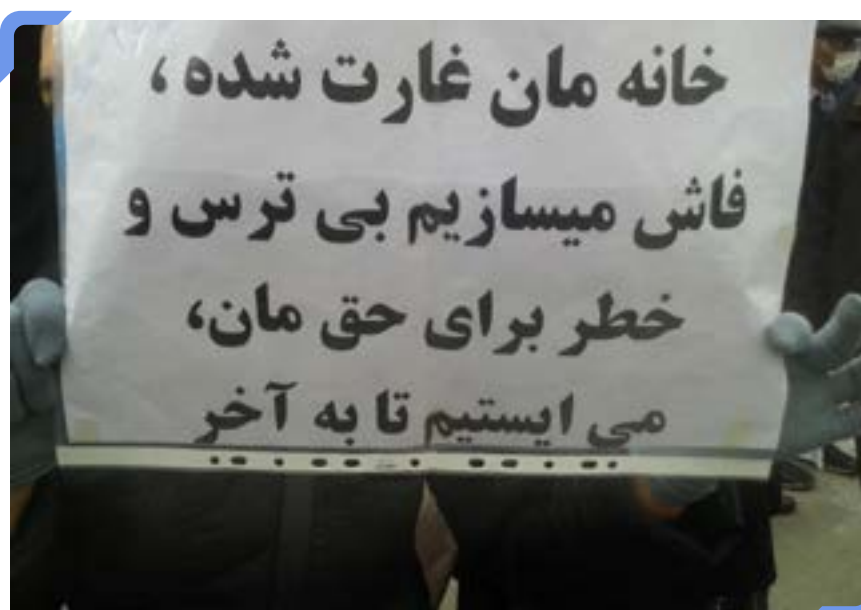 خانه مان غارت شده ،
فاش میسازیم بی ترس و
خطر برای حق مان،
می ایستیم تا به آخر